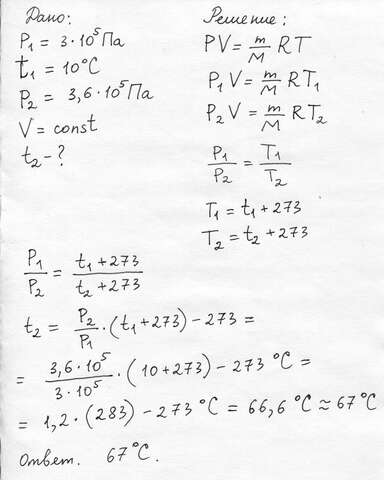 Дано:
P₁ = 3·10⁵Па
t₁ = 10°C
P₂ = 3,6·10⁵Па
V = const
t₂ - ?
Решение:
PV = m/M RT
P₁V = m/M RT₁
P₂V = m/M RT₂
P₁/P₂ = T₁/T₂
T₁ = t₁ + 273
T₂ = t₂ + 273
P₁/P₂ = (t₁ + 273)/(t₂ + 273)
t₂ = P₂/P₁ · (t₁ + 273) − 273 =
= 3,6·10⁵/3·10⁵ · (10 + 273) − 273 °C =
= 1,2 · (283) − 273 °C = 66,6 °C ≈ 67 °C
Ответ. 67 °C.